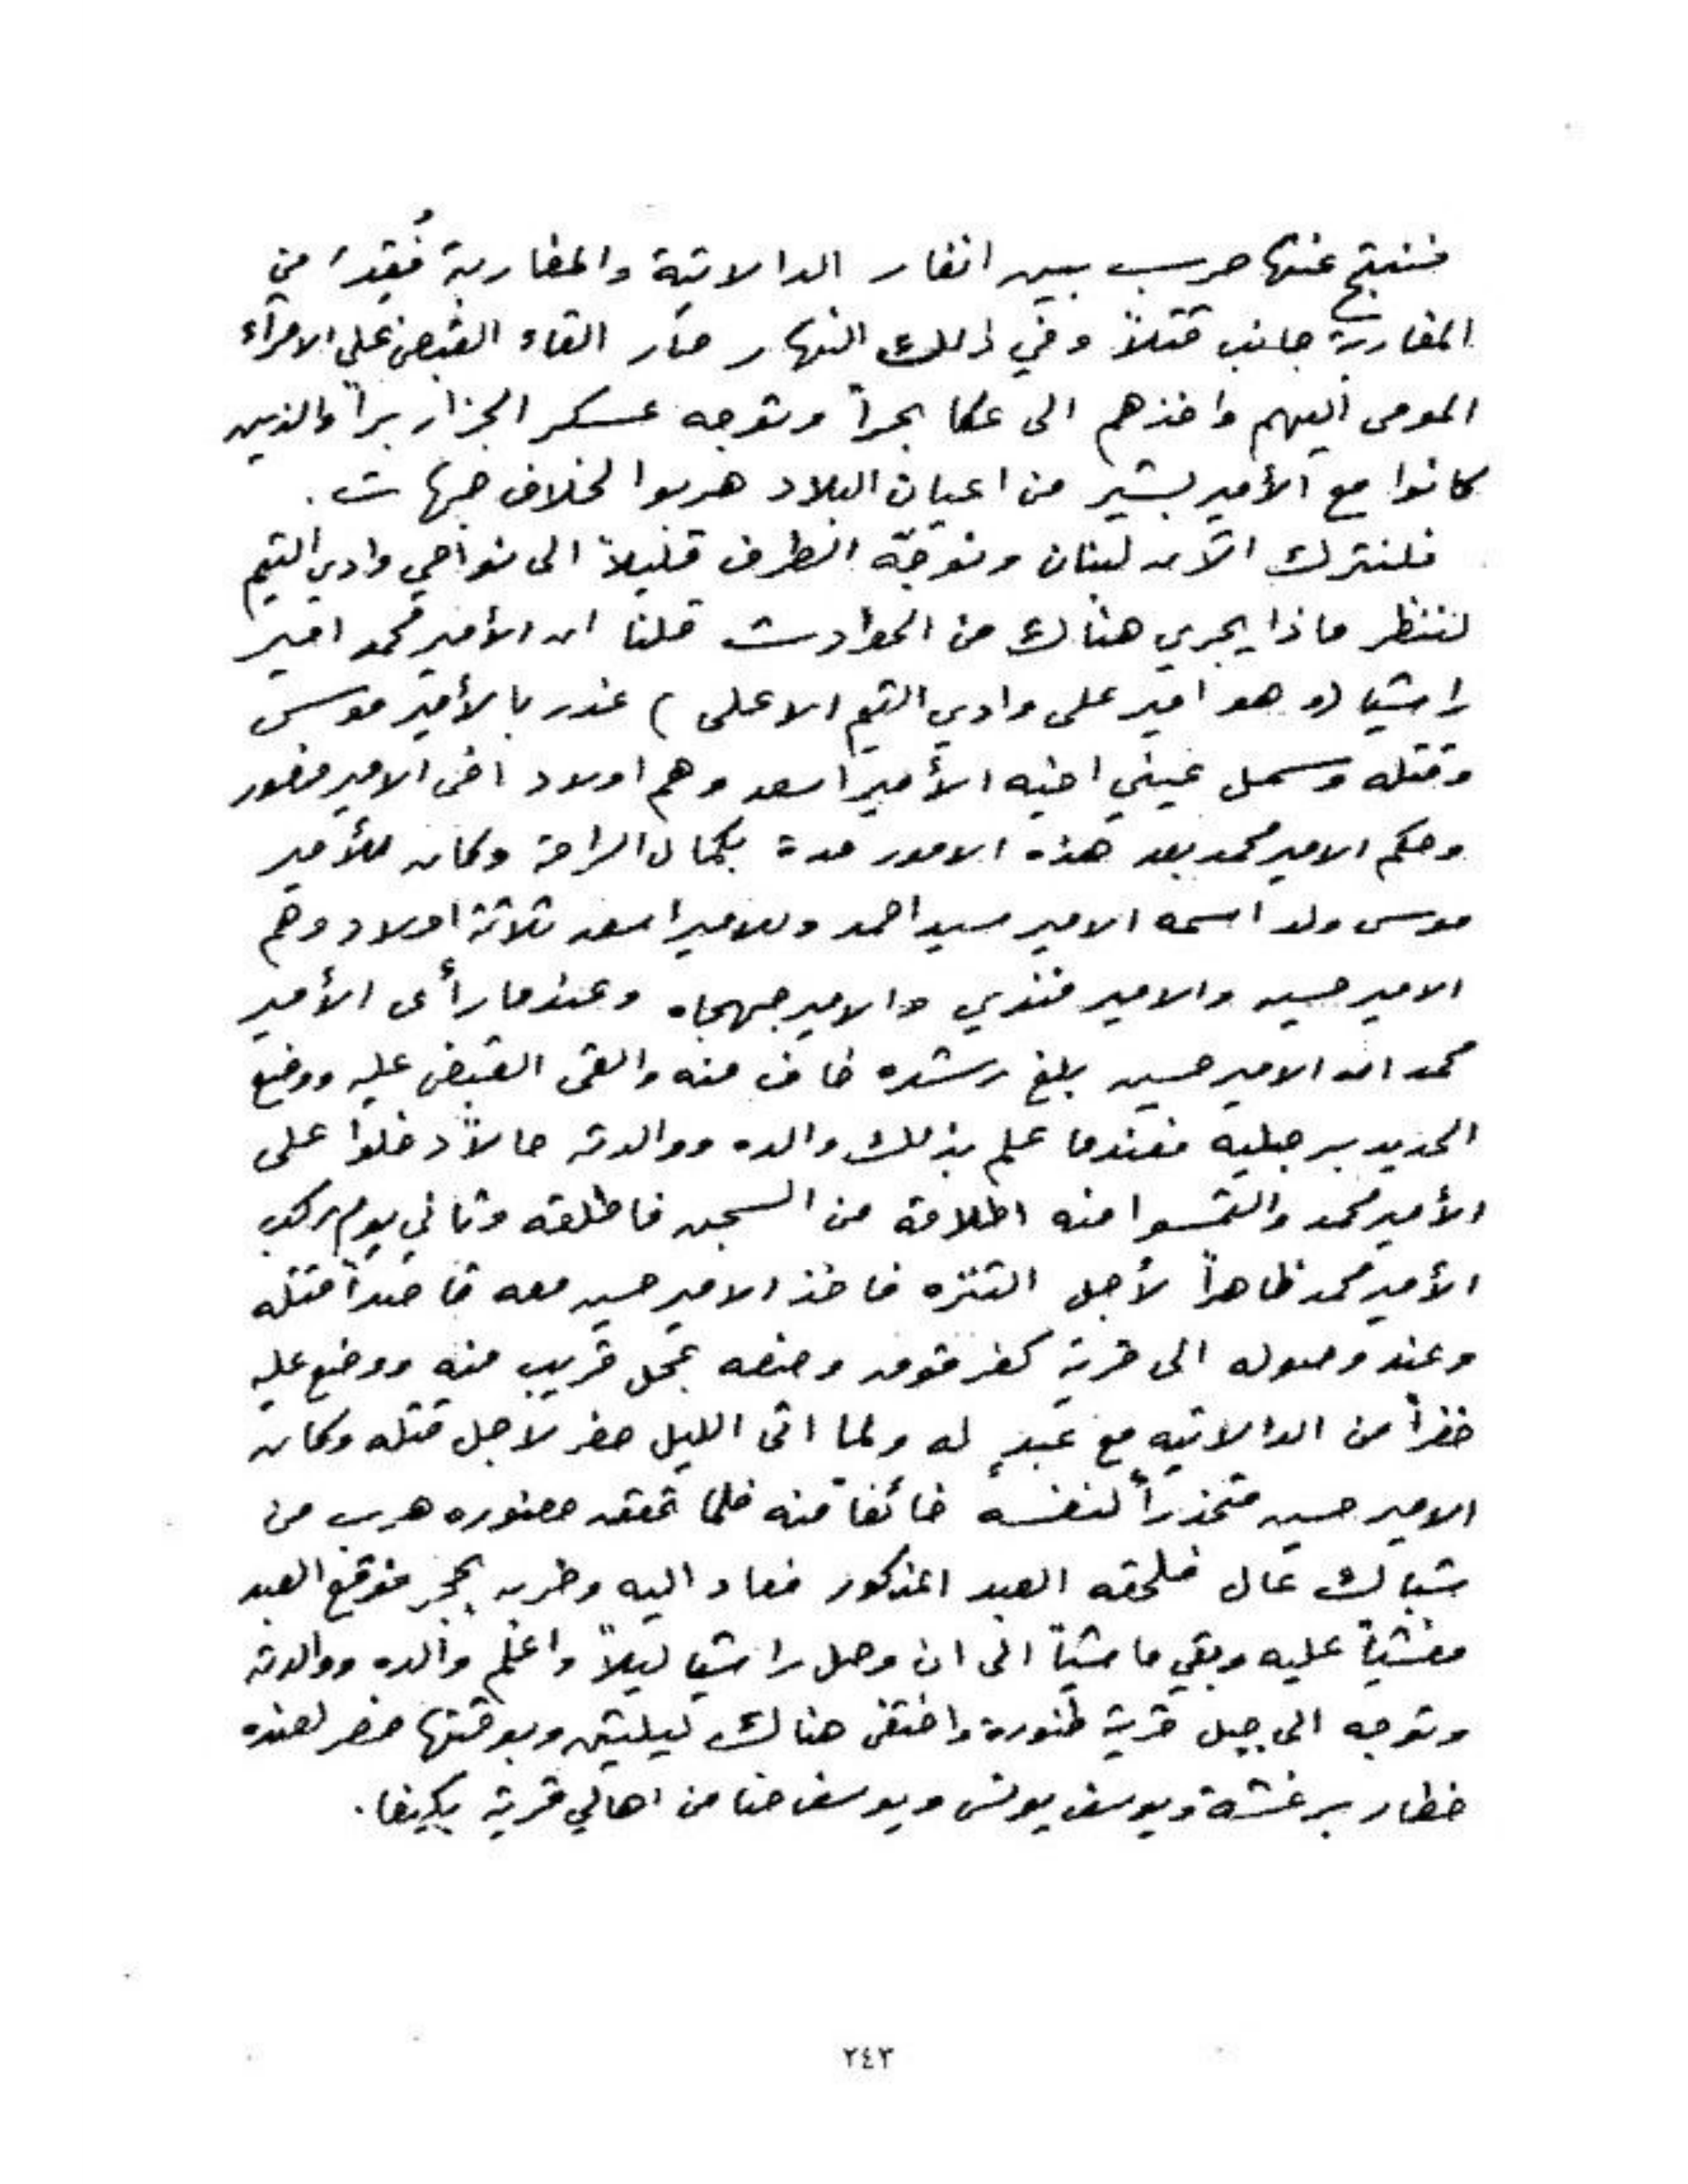 فنتج عنها حرب بين انفار الدالاتية والمغاربة فُقِدَ من
المغاربة جانب قتلاً وفي ذلك النهار صار القاء القبض على الامراء
المومى اليهم واخذهم الى عكا بحراً وتوجه عسكر الجزار براً والذين
كانوا مع الأمير بشير من اعيان البلاد هربوا لخلاف جهات .
فلنترك الآن لبنان ونوجّه الطرف قليلاً الى نواحي وادي التيم
لننظر ماذا يجري هناك من الحوادث قلنا ان الأمير محمد امير
راشيا (و هو امير على وادي التيم الاعلى) غدر بالأمير موسى
وقتله وسمل عيني اخيه الأمير اسعد وهم اولاد اخى الامير منصور
وحكم الامير محمد بعد هذه الامور مدة بكمال الراحة وكان للأمير
موسى ولد اسمه الامير سيد احمد وللامير اسعد ثلاثة اولاد وهم
الامير حسين والامير فندي والامير جهجاه وعندما رأى الأمير
محمد ان الامير حسين بلغ رشده خاف منه والقى القبض عليه ووضع
الحديد برجليه فعندما علم بذلك والده ووالدته حالاً دخلوا على
الأمير محمد والتمسوا منه اطلاقه من السجن فاطلقه وثاني يوم ركب
الأمير محمد ظاهراً لأجل التنزه فاخذ الامير حسين معه قاصداً قتله
وعند وصوله الى قرية كفر قوق وضعه بمحل قريب منه ووضع عليه
خفراً من الدالاتيه مع عبدٍ له ولما اتى الليل حضر لاجل قتله وكان
الامير حسين متحذراً لنفسه خائفاً منه فلما تحقق حضوره هرب من
شباك عال فلحقه العبد المذكور فعاد اليه وضربه بحجر فوقع العبد
مغشياً عليه وبقي ماشياً الى ان وصل راشيا ليلاً واعلم والده ووالدته
وتوجه الى جبل قرية طنورة واختفى هناك ليلتين وبوقتها حضر لعنده
خطار برغشة ويوسف يونس ويوسف حنا من اهالي قرية بكيفا .
٢٤٣